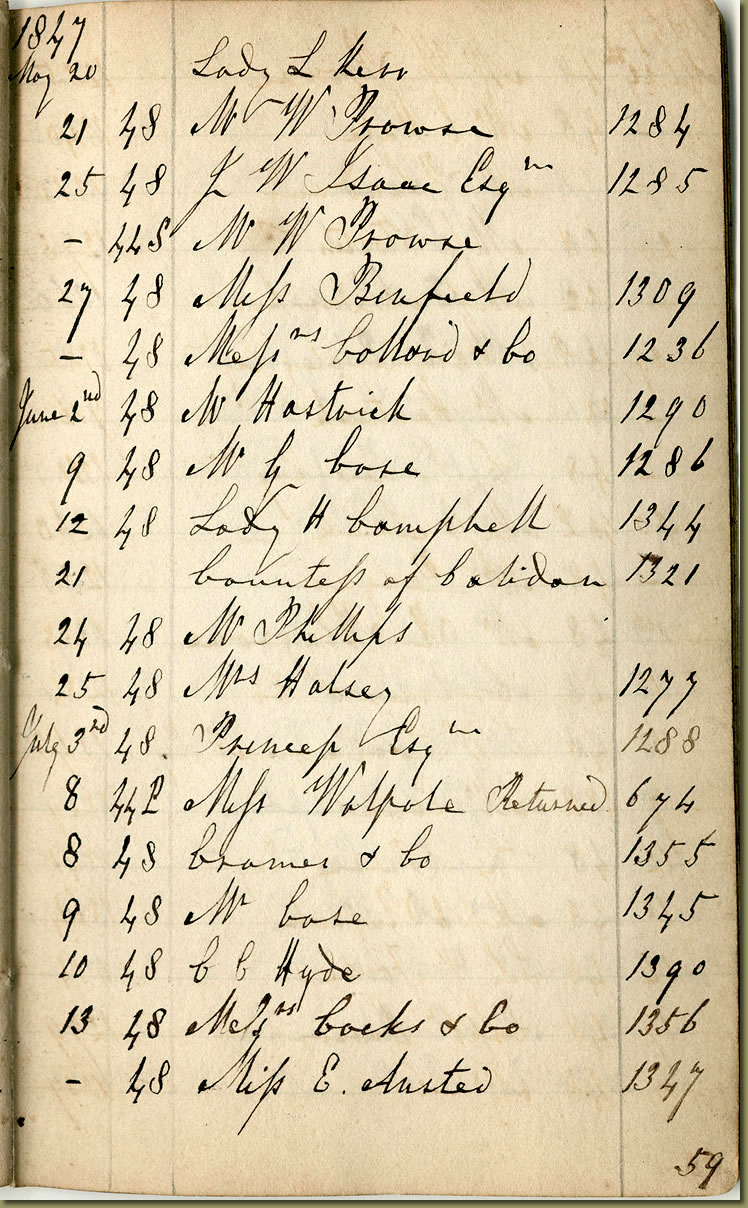 1847
May 20 Lady L Kerr
21 48 Mr W Prowse 1284
25 48 J W Isaac Esqre 1285
– 448 Mr W Prowse
27 48 Miss Binfield 1309
– 48 Messrs Collard & Co 1236
June 2nd 48 Mr Hastrick 1290
9 48 Mr G Case 1286
12 48 Lady H Campbell 1344
21 Countess of Caledon 1321
24 48 Mr Phillips
25 48 Mrs Halsey 1277
July 3rd 48 Princep Esqre 1288
8 Miss Walpole Returned 674
8 48 Cramer & Co 1355
9 48 Mr Case 1345
10 48 C C Hyde 1390
13 48 Messrs Cocks & Co 1356
– 48 Miss E. Ansted 1347
59